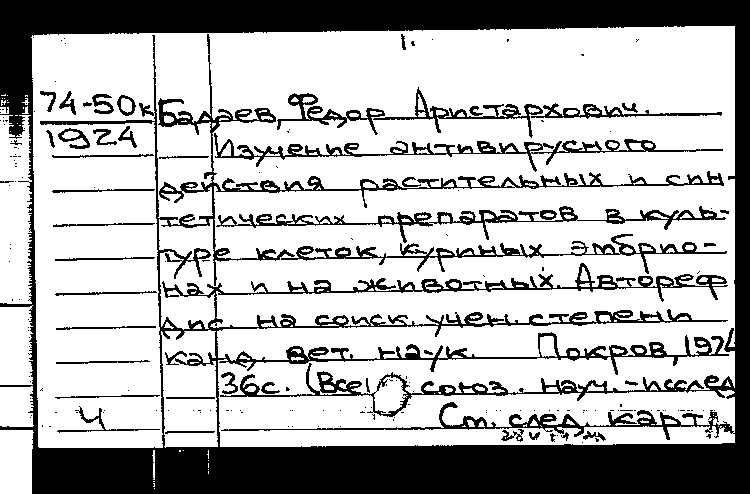 1.
74-50к
1924
Бадаев, Федор Аристархович.
Изучение антивирусного
действия растительных и син-
тетических препаратов в куль-
туре клеток, куриных эмбрио-
нах и на животных. Автореф
дис. на соиск. учен. степени
канд. вет. наук. Покров, 1974
36с. (Все союз. науч.-исслед
Ч
См. след. карт